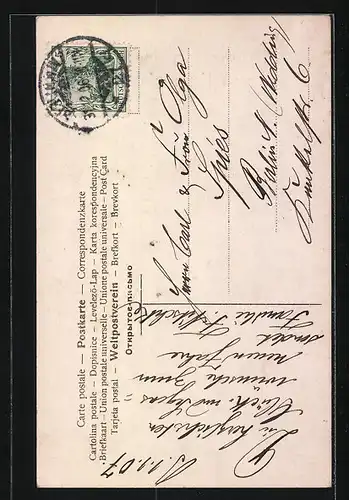 Carte postale — Postkarte — Correspondenzkarte
Cartolina postale – Dopisnice – Levelező-Lap – Karta korespondencyjna
Briefkaart – Union postale universelle – Unione postale universale – Post Card
Tarjeta postal – Weltpostverein – Brefkort – Brevkort
Открытое письмо
Herrn Carl & Frau Olga
Spies
Berlin
6
B. 1.1.07.
Die herzlichsten
Glück- und Segens
wünsche zum
neuen Jahre
sendet
Familie